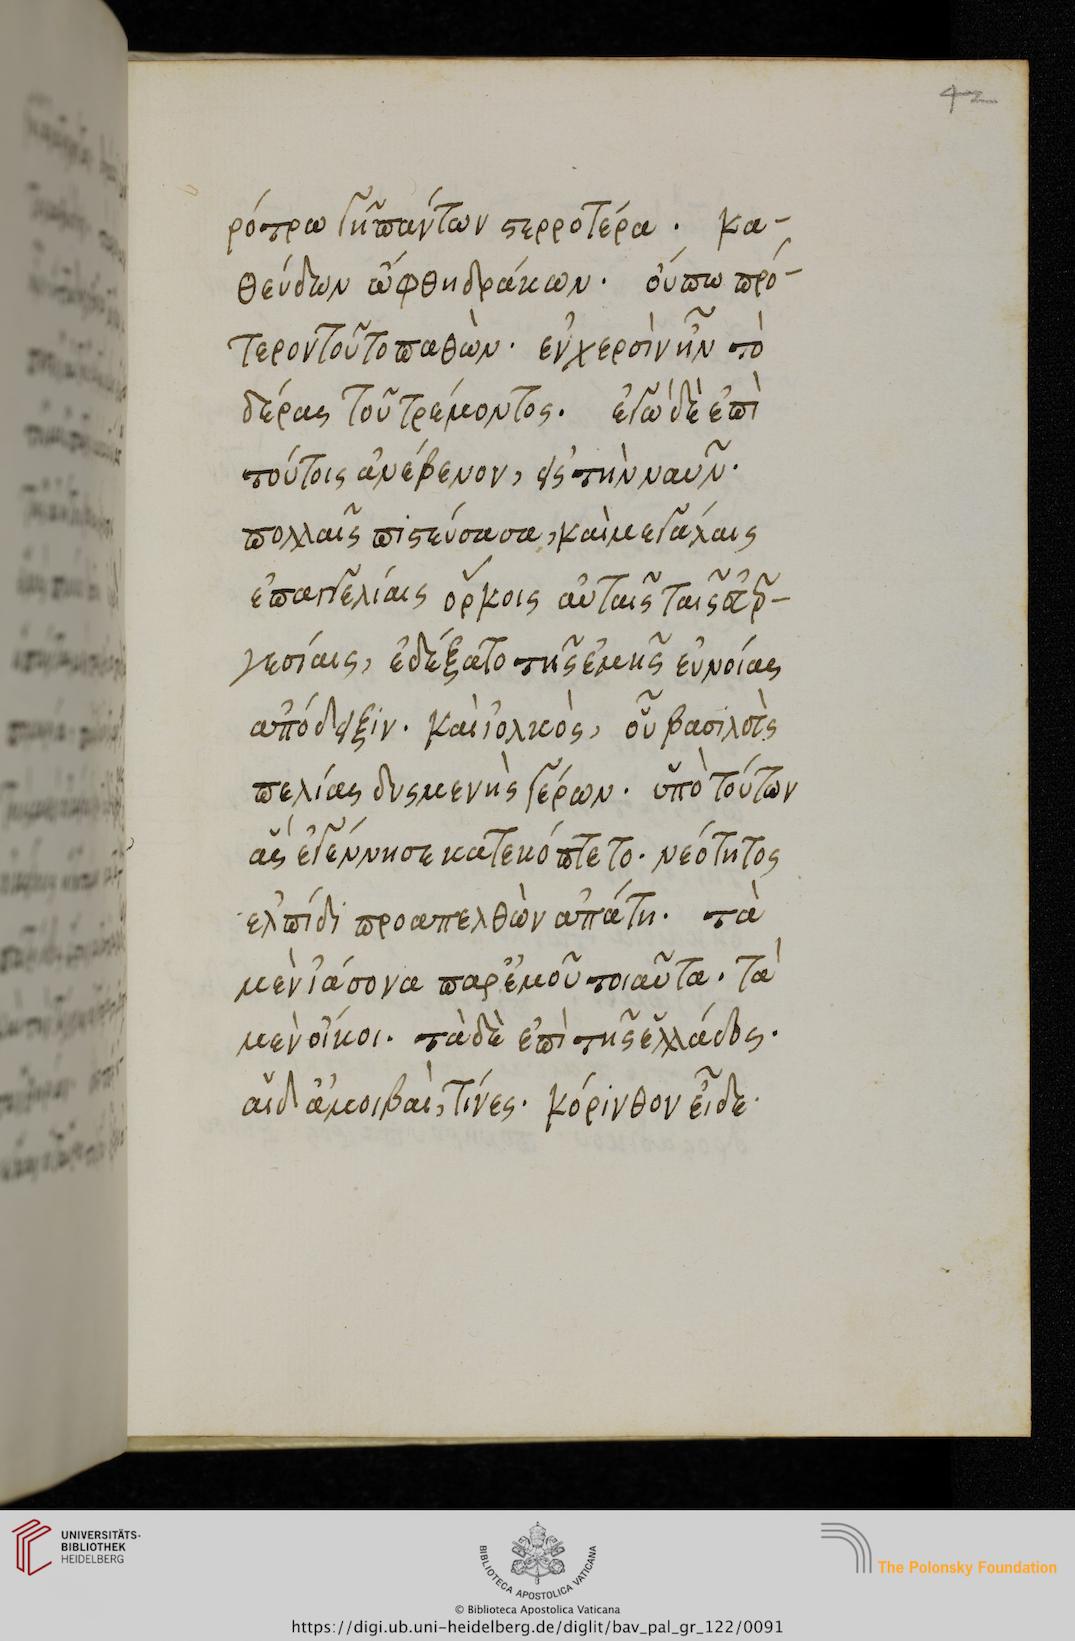 42
ρότρω γῆ πάντων στερροτέρα · κα-
θεύδων ὤφθη δράκων · οὔπω πρό-
τερον τοῦτο παθὼν · ἐν χερσὶν ἦν τὸ
δέρας τοῦ τρέμοντος · ἐγὼ δὲ ἐπὶ
τούτοις ἀνέβενον, εἰς τὴν ναῦν ·
πολλαῖς πιστεύσασα, καὶ μεγάλαις
ἐπαγγελίαις ὅρκοις αὐταῖς ταῖς
γεσίαις, ἐδέξατο τῆς ἐμῆς εὐνοίας
ἀπόδειξιν · καὶ ἰολκὸς, οὗ βασιλεὺς
πελίας δυσμενὴς γέρων · ὑπὸ τούτων
ἃς ἐγέννησε κατεκόπτετο · νεότητος
ἐλπίδι προαπελθὼν ἀπάτη · τὰ
μὲν ἰάσονα παρ' ἐμοῦ τοιαῦτα · τὰ
μὲν οἴκοι · τὰ δὲ ἐπὶ τῆς ἑλλάδος ·
αἱ δ' ἀμοιβαὶ, τίνες · κόρινθον εἶδε ·
UNIVERSITÄTS-
BIBLIOTHEK
HEIDELBERG
BIBLIOTECA APOSTOLICA VATICANA
The Polonsky Foundation
© Biblioteca Apostolica Vaticana
https://digi.ub.uni-heidelberg.de/diglit/bav_pal_gr_122/0091